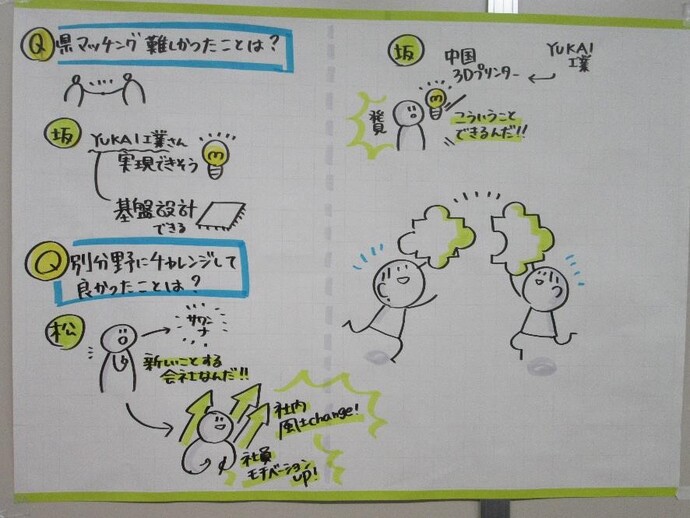 Q 県マッチング 難しかったことは?
坂 YUKAI工業さん
実現できそう
基盤設計
できる
Q 別分野にチャレンジして
良かったことは?
松
サウンナ
新しいことする
会社なんだ!!
社内
風土change!
社員
モチベーション
up!
坂 中国
3Dプリンター
YUKAI
工業
発見
こういうこと
できるんだ!!